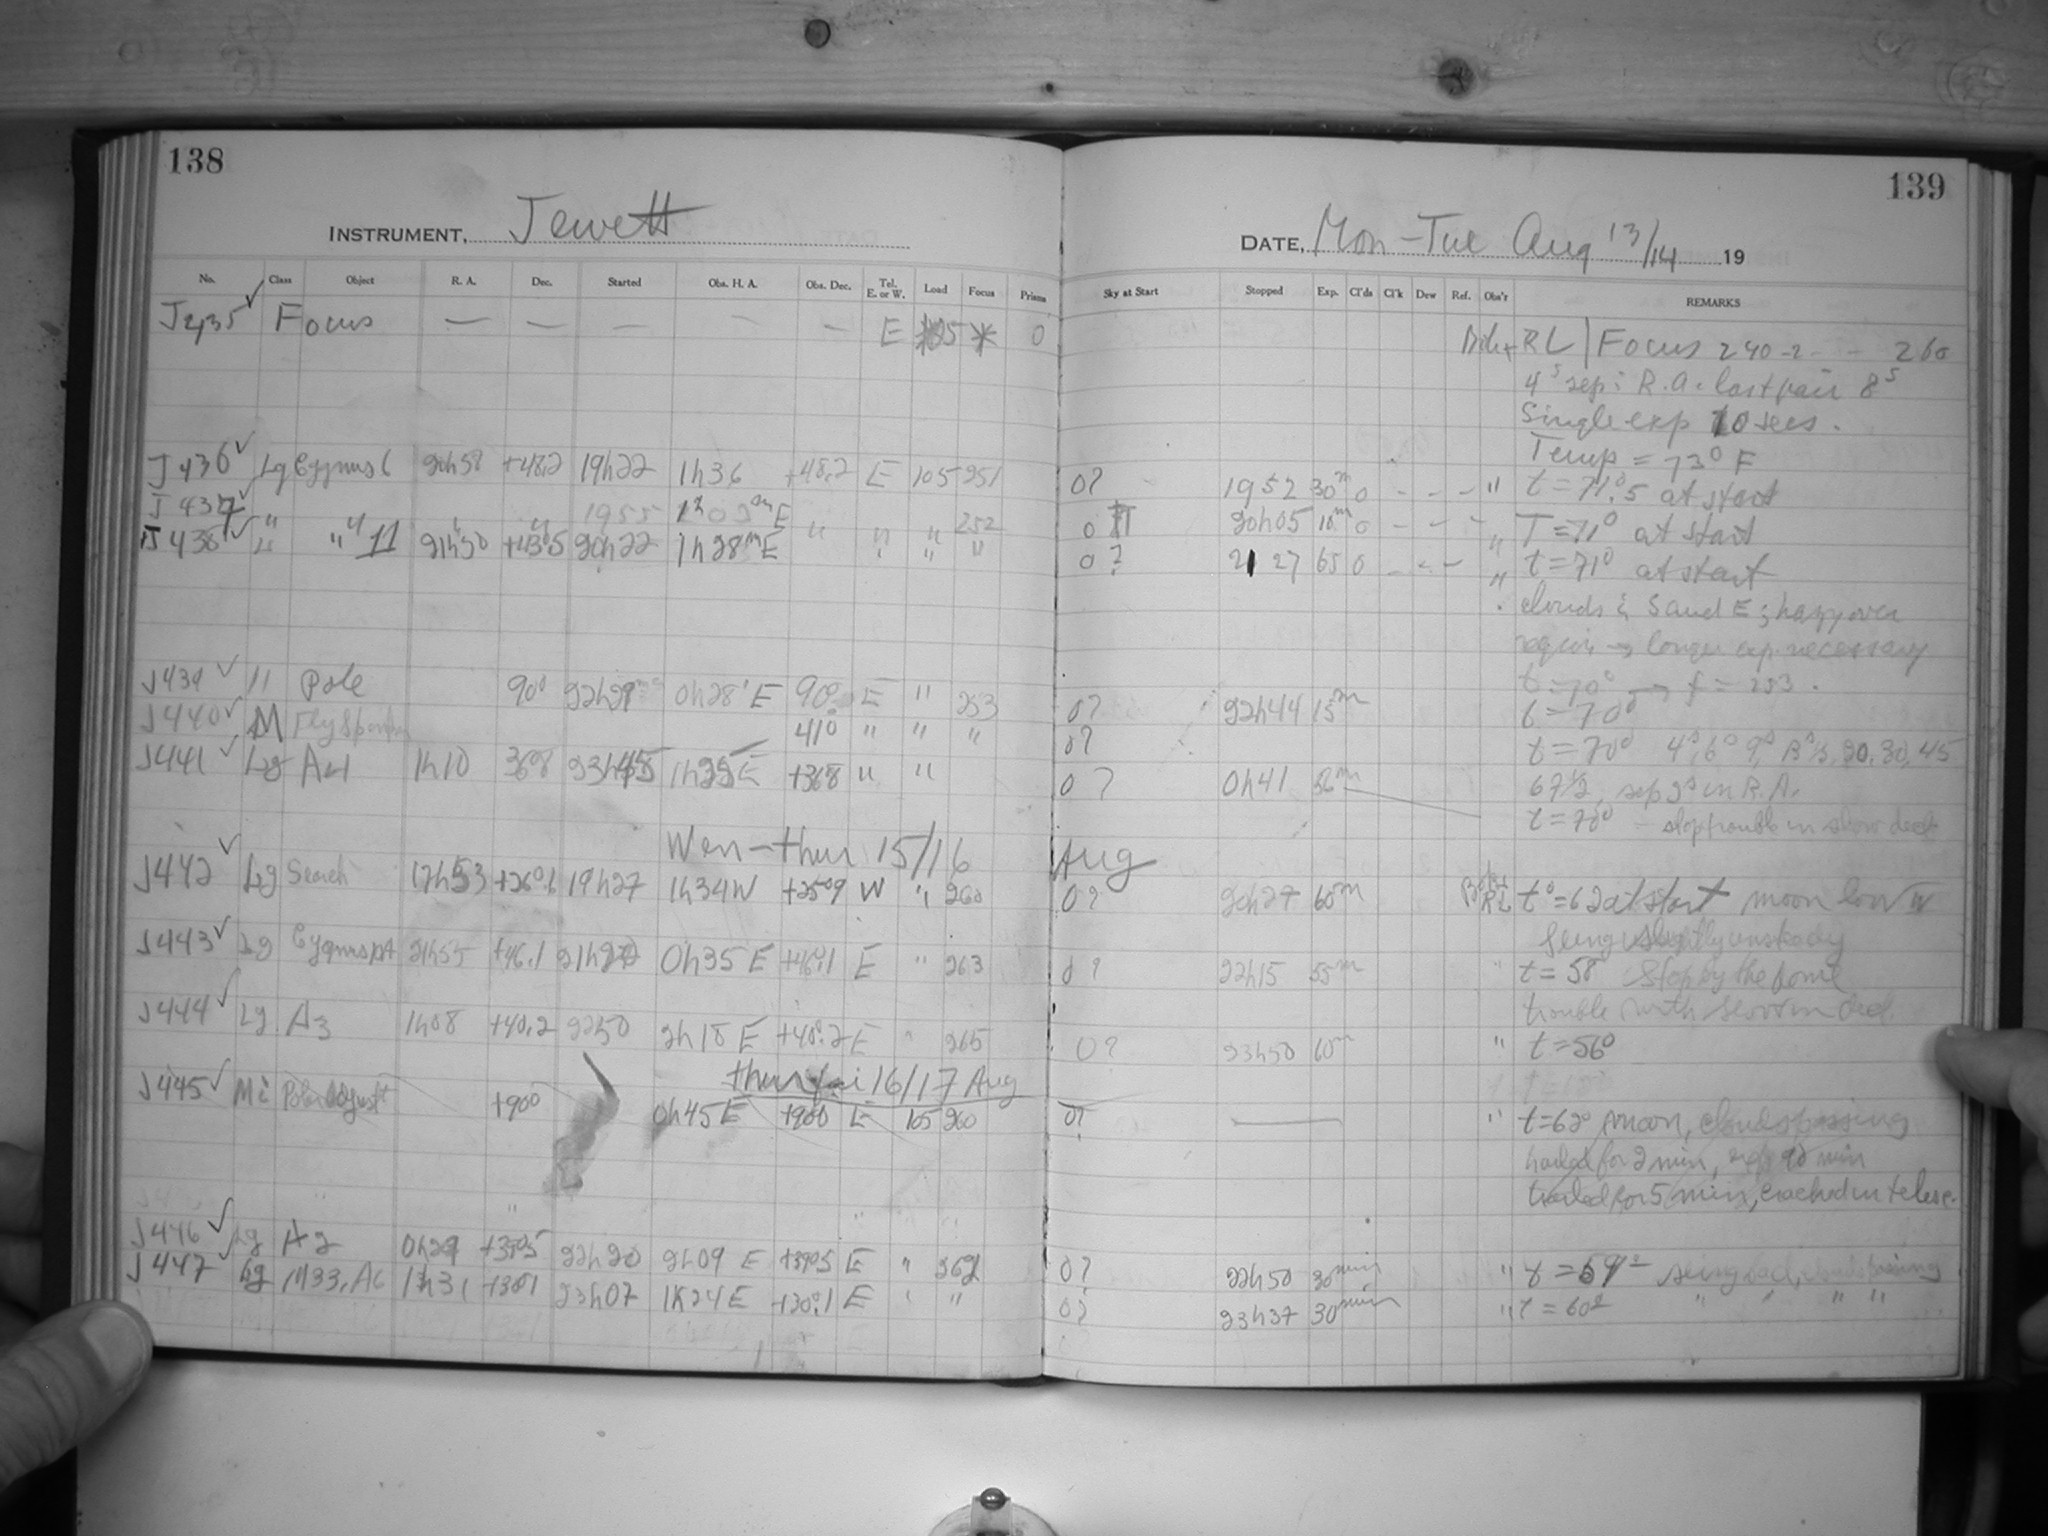 138
139
INSTRUMENT, Jewett
DATE, Mon-Tue Aug 13/14 19
No. Class Object R. A. Dec. Started Obs. H. A. Obs. Dec. Tel. E. or W. Load Focus Prisms
Sky at Start Stopped Exp. Cl'ds Cl'k Dew Ref. Obs'r REMARKS
J435 ✓ Focus — — — — — E * 0
RL Focus 240-2 - - 260
4s sep: R.A. last pair 8s
Single exp 10 secs.
Temp = 73° F
J436 ✓ Lg Cygnus 6 20h58 +48.2 19h22 1h36 +48.2 E 105 251
0? 1952 30m 0 - - - " t = 71°.5 at start
J437 ✓ " " " " 1955 " " " 252
0 20h05 10m 0 - - - " T = 71° at start
J438 ✓ " " 11 21h50 +43.5 20h22 1h28m E " " "
0? 21 27 65 0 - - - " t = 71° at start
clouds in S and E; hazy over
region → longer exp necessary
t = 70° → f = 253.
J439 ✓ " Pole 90° 22h29 0h28' E 90° E " 253
0? 22h44 15m t = 70°
J440 ✓ M Fly Span 41° " " "
0? t = 70° 4s, 6s, 9s, 13½, 20, 30, 45
67½, sep 2s in R.A.
J441 ✓ Lg A4 1h10 36.8 23h45 1h25 E +36.8 " "
0? 0h41 56m
t = 70° - stop trouble in slow decl
Wen-thur 15/16 Aug
J442 ✓ Lg Search 17h53 +26°.1 19h27 1h34W +25.9 W " 260
0? 20h27 60m RL t° = 62 at start moon low W
seeing slightly unsteady
J443 ✓ Lg Cygnus 21h55 +46.1 21h20 0h35 E +46.1 E " 263
0? 22h15 55m " t = 58 Stop by the dome
trouble with slow in decl.
J444 ✓ Lg A3 1h08 +40.2 2250 2h18 E +40.2 E " 265
0? 23h50 60m " t = 56°
thur fri 16/17 Aug
J445 ✓ Mi Polar Adjust +90° 0h45 E +90° E 105 260
0? — " t = 62° moon, clouds passing
trailed for 2 min, 90 min
trailed for 5 min, telesc.
J446 ✓ Lg A2 0h29 +39.5 22h20 2h09 E +39.5 E " 262
0? 22h50 30min " t = 59° seeing bad, clouds passing
J447 ✓ Lg M33, A6 1h31 +30.1 23h07 1h24 E +30.1 E " "
0? 23h37 30min " t = 60° " " " "